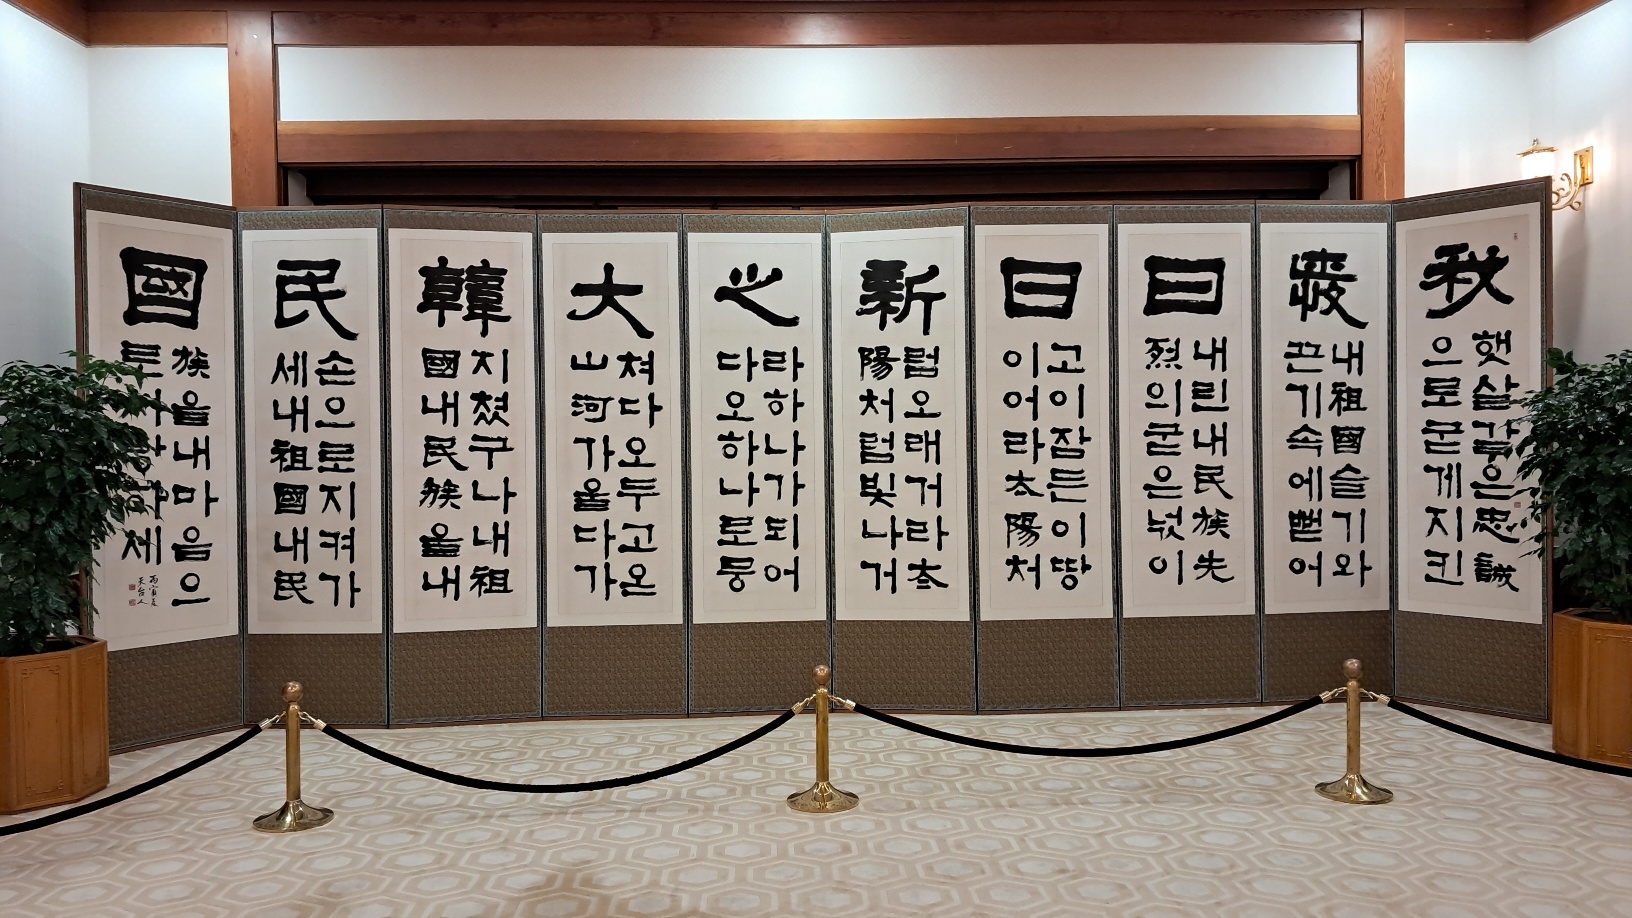 我愛日日新之大韓民國
햇살같은忠誠
으로굳게지킨
내祖國슬기와
끈기속에뻗어
내린내民族先
烈의굳은넋이
고이잠든이땅
이어라太陽처
럼오래거라太
陽처럼빛나거
라하나가되어
다오하나로뭉
쳐다오두고온
山河가울다가
지쳤구나내祖
國내民族을내
손으로지켜가
세내祖國내民
族을내마음으
로사랑하세
丙寅夏
天台人